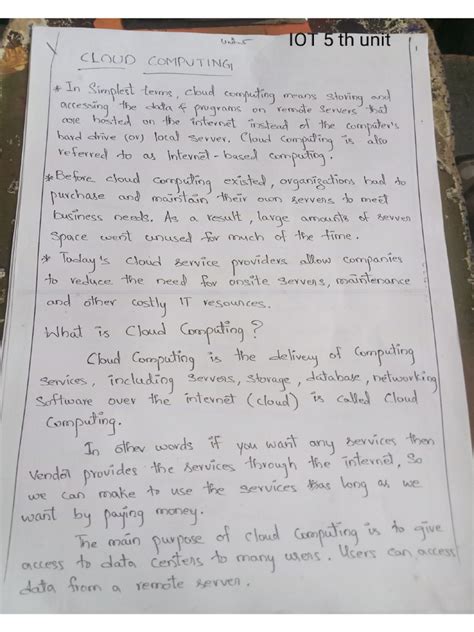 Unit-5
IOT 5 th unit
CLOUD COMPUTING
* In Simplest terms, cloud computing means storing and
accessing the data & programs on remote servers that
are hosted on the internet instead of the computer's
hard drive (or) local server. Cloud computing is also
referred to as Internet-based computing.
* Before cloud computing existed, organizations had to
purchase and maintain their own servers to meet
business needs. As a result, large amounts of server
space went unused for much of the time.
* Today's cloud service providers allow companies
to reduce the need for onsite servers, maintenance
and other costly IT resources.
What is Cloud Computing?
Cloud Computing is the delivery of Computing
Services, including Servers, storage, database, networking
Software over the internet (cloud) is called Cloud
Computing.
In other words if you want any services then
Vendor provides the services through the internet, So
we can make to use the services as long as we
want by paying money.
The main purpose of cloud Computing is to give
access to data centers to many users. Users can access
data from a remote server.